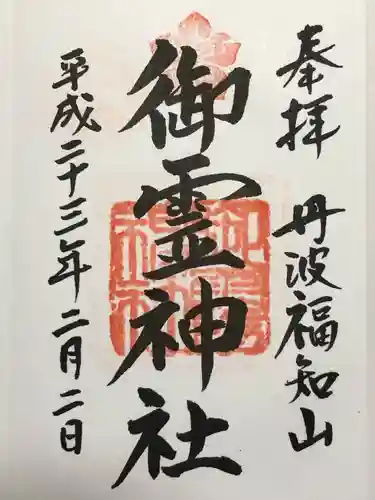 奉拝 丹波福知山
御霊神社
平成二十三年二月二日
御靈神社